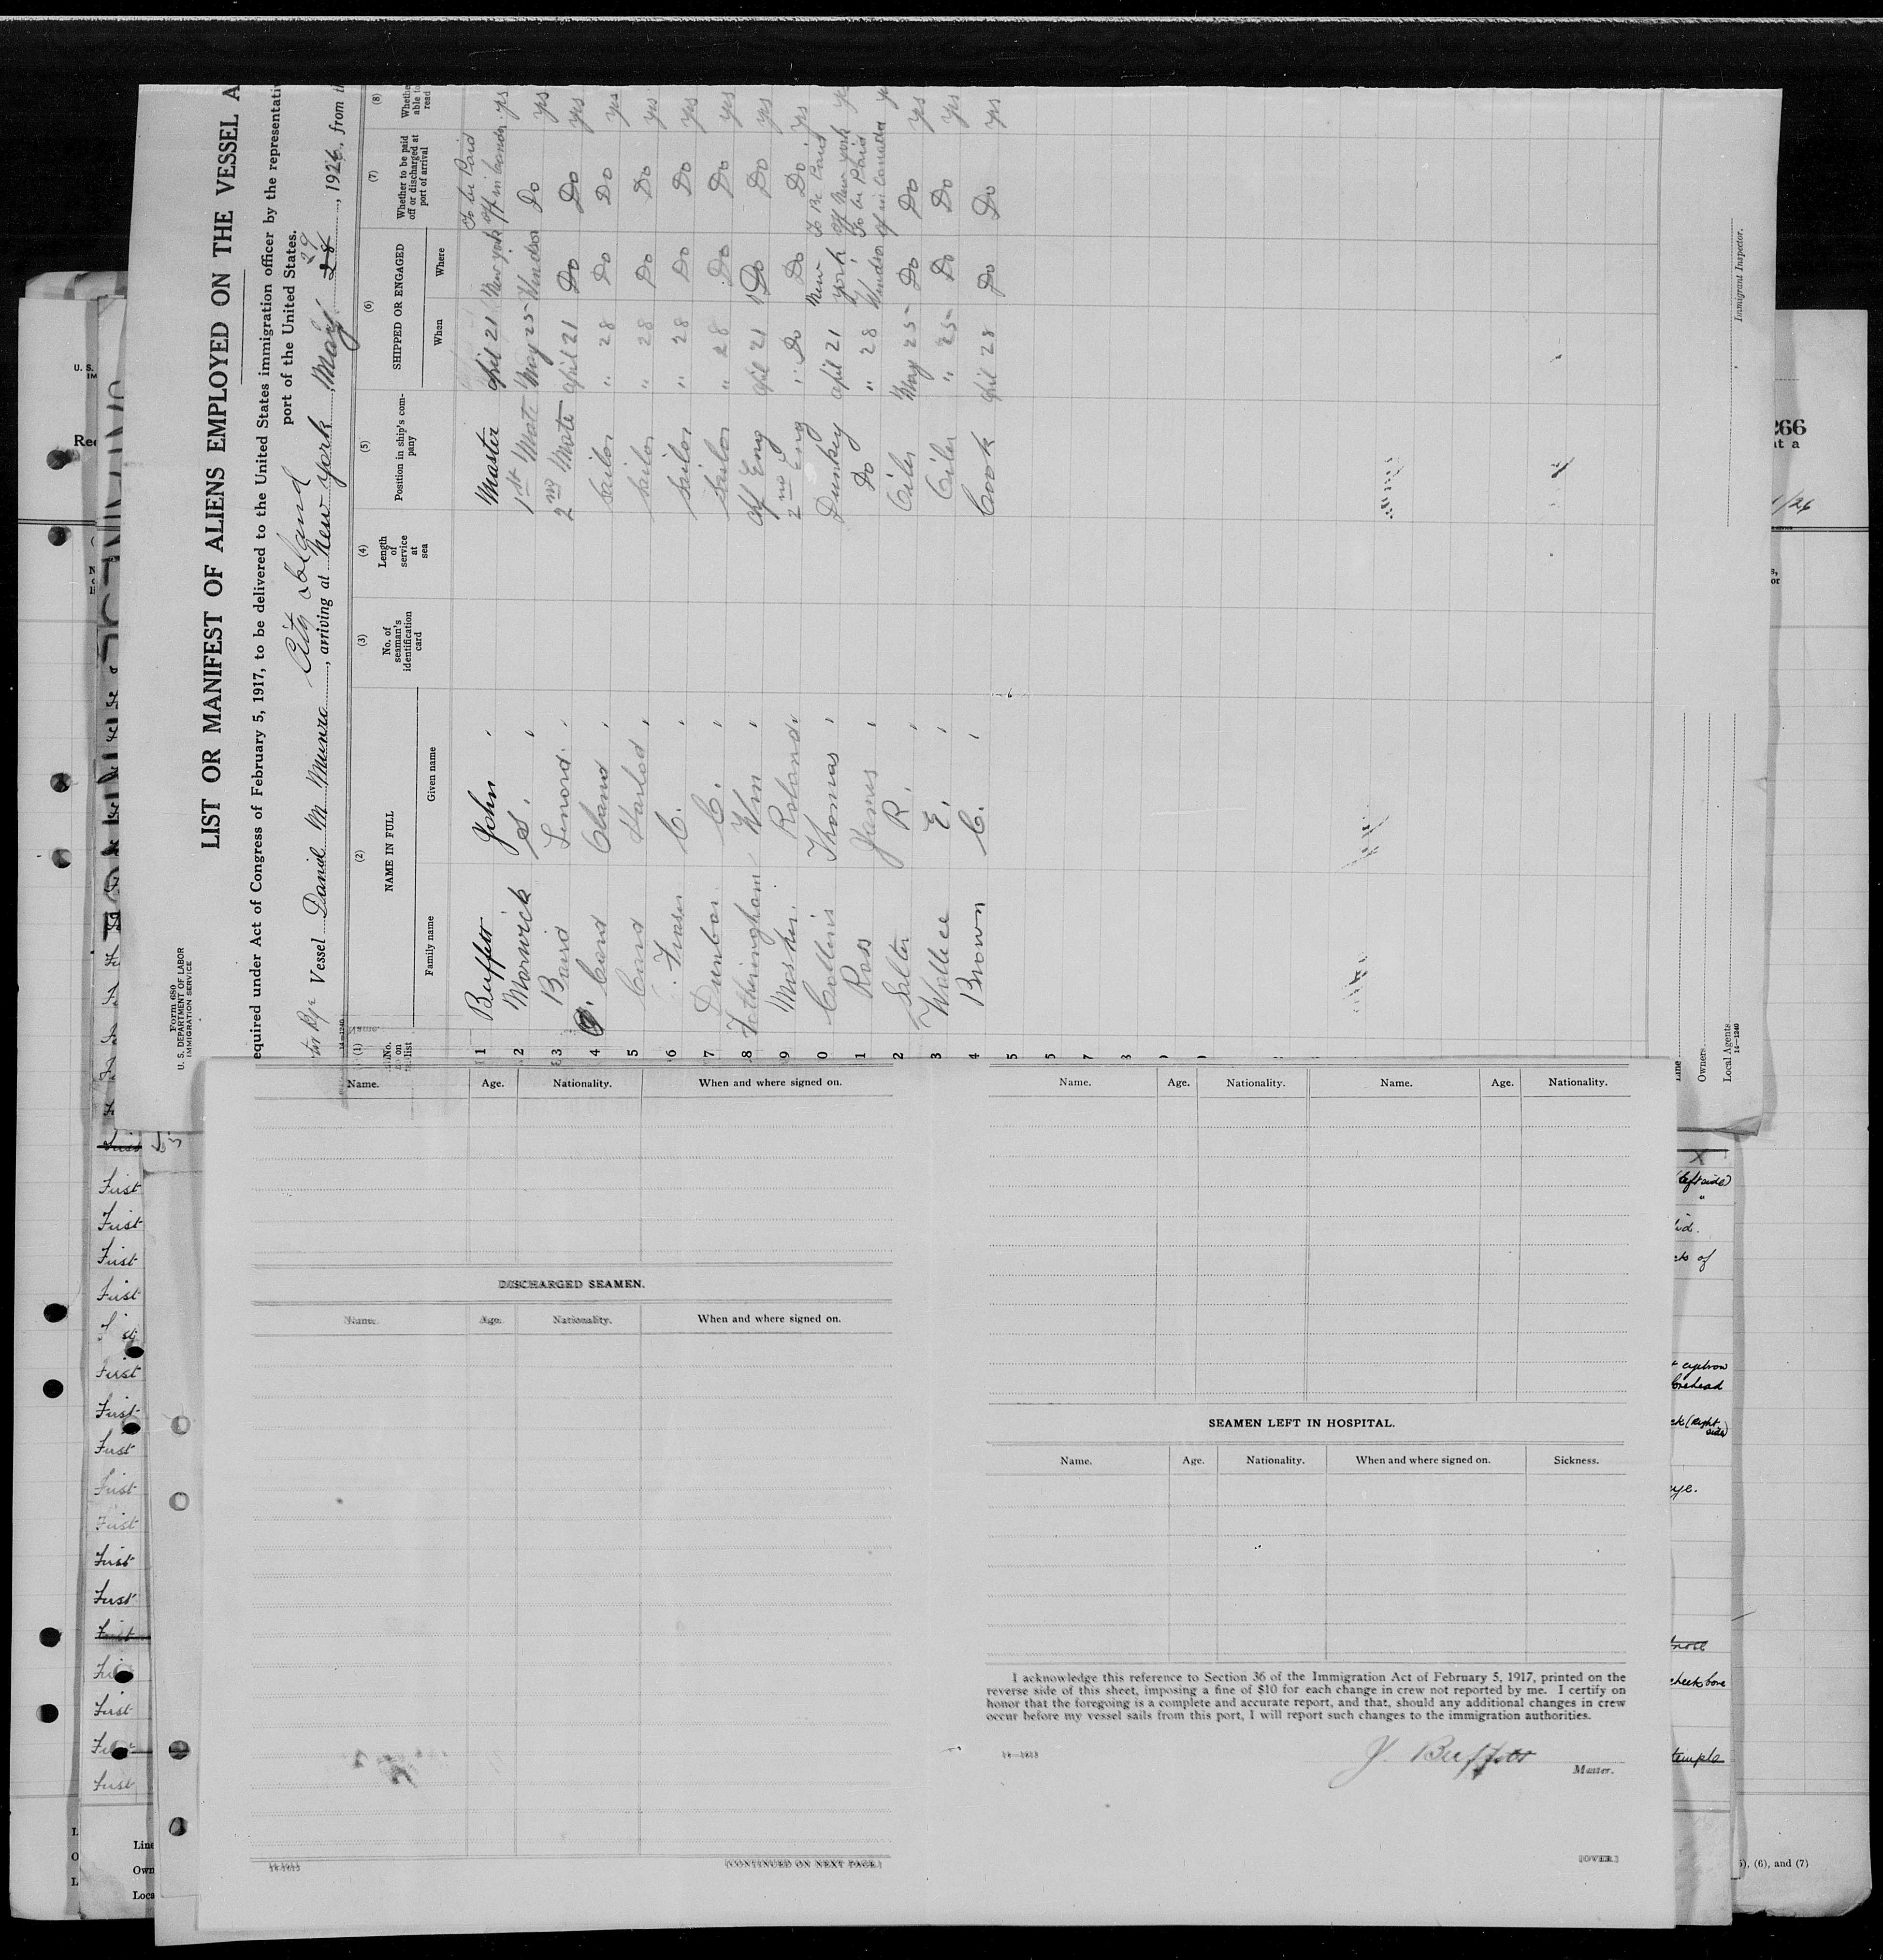 Form 680
U. S. DEPARTMENT OF LABOR
IMMIGRATION SERVICE
LIST OR MANIFEST OF ALIENS EMPLOYED ON THE VESSEL A
equired under Act of Congress of February 5, 1917, to be delivered to the United States immigration officer by the representativ
port of the United States.
City Island 29
Vessel Daniel M Munro, arriving at New York, May 28, 1926, from th
(1) (2) (3) (4) (5) (6) (7) (8)
No. on list NAME IN FULL No. of seaman's identification card Length of service at sea Position in ship's company SHIPPED OR ENGAGED Whether to be paid off or discharged at port of arrival Whethe able to read
Family name Given name When Where
1 Buffett John Master April 21 New York To be Paid off in Canada yes
2 Marwick S. 1st Mate May 25 Windsor Do yes
3 Baird Lenord 2nd Mate April 21 Do Do yes
4 Card Oland Sailor " 28 Do Do yes
5 Card Harlod Sailor " 28 Do Do yes
6 Fraser C. Sailor " 28 Do Do yes
7 Dunbar C. Sailor " 28 Do Do yes
8 Fetheringham Wm Chf Eng April 21 Do Do yes
9 Mosher Roland 2nd Eng " Do Do Do yes
0 Collins Thomas Dunkey April 21 New York To Be Paid off New York ye
1 Ross James Do " 28 Windsor To be Paid of in Canada ye
2 Salter R. Oiler May 25 Do Do yes
3 Wallace E. Oiler " 25 Do Do yes
4 Brown C. Cook April 28 Do Do yes
5
Line
Owners
Local Agents
14—1240
Immigrant Inspector.
Name. Age. Nationality. When and where signed on.
DISCHARGED SEAMEN.
Name. Age. Nationality. When and where signed on.
14-1613
[CONTINUED ON NEXT PAGE.]
Name. Age. Nationality. Name. Age. Nationality.
SEAMEN LEFT IN HOSPITAL.
Name. Age. Nationality. When and where signed on. Sickness.
I acknowledge this reference to Section 36 of the Immigration Act of February 5, 1917, printed on the
reverse side of this sheet, imposing a fine of $10 for each change in crew not reported by me. I certify on
honor that the foregoing is a complete and accurate report, and that, should any additional changes in crew
occur before my vessel sails from this port, I will report such changes to the immigration authorities.
14—1613
J. Buffett
Master.
[OVER.]
U. S.
Rec
First
First
First
First
First
First
First
First
First
First
First
First
First
First
First
First
Line
Own
Loca
266
at a
/26
(left side)
"
eyebrow
forehead
(Right side)
eye.
nose
cheek bone
temple
5), (6), and (7)